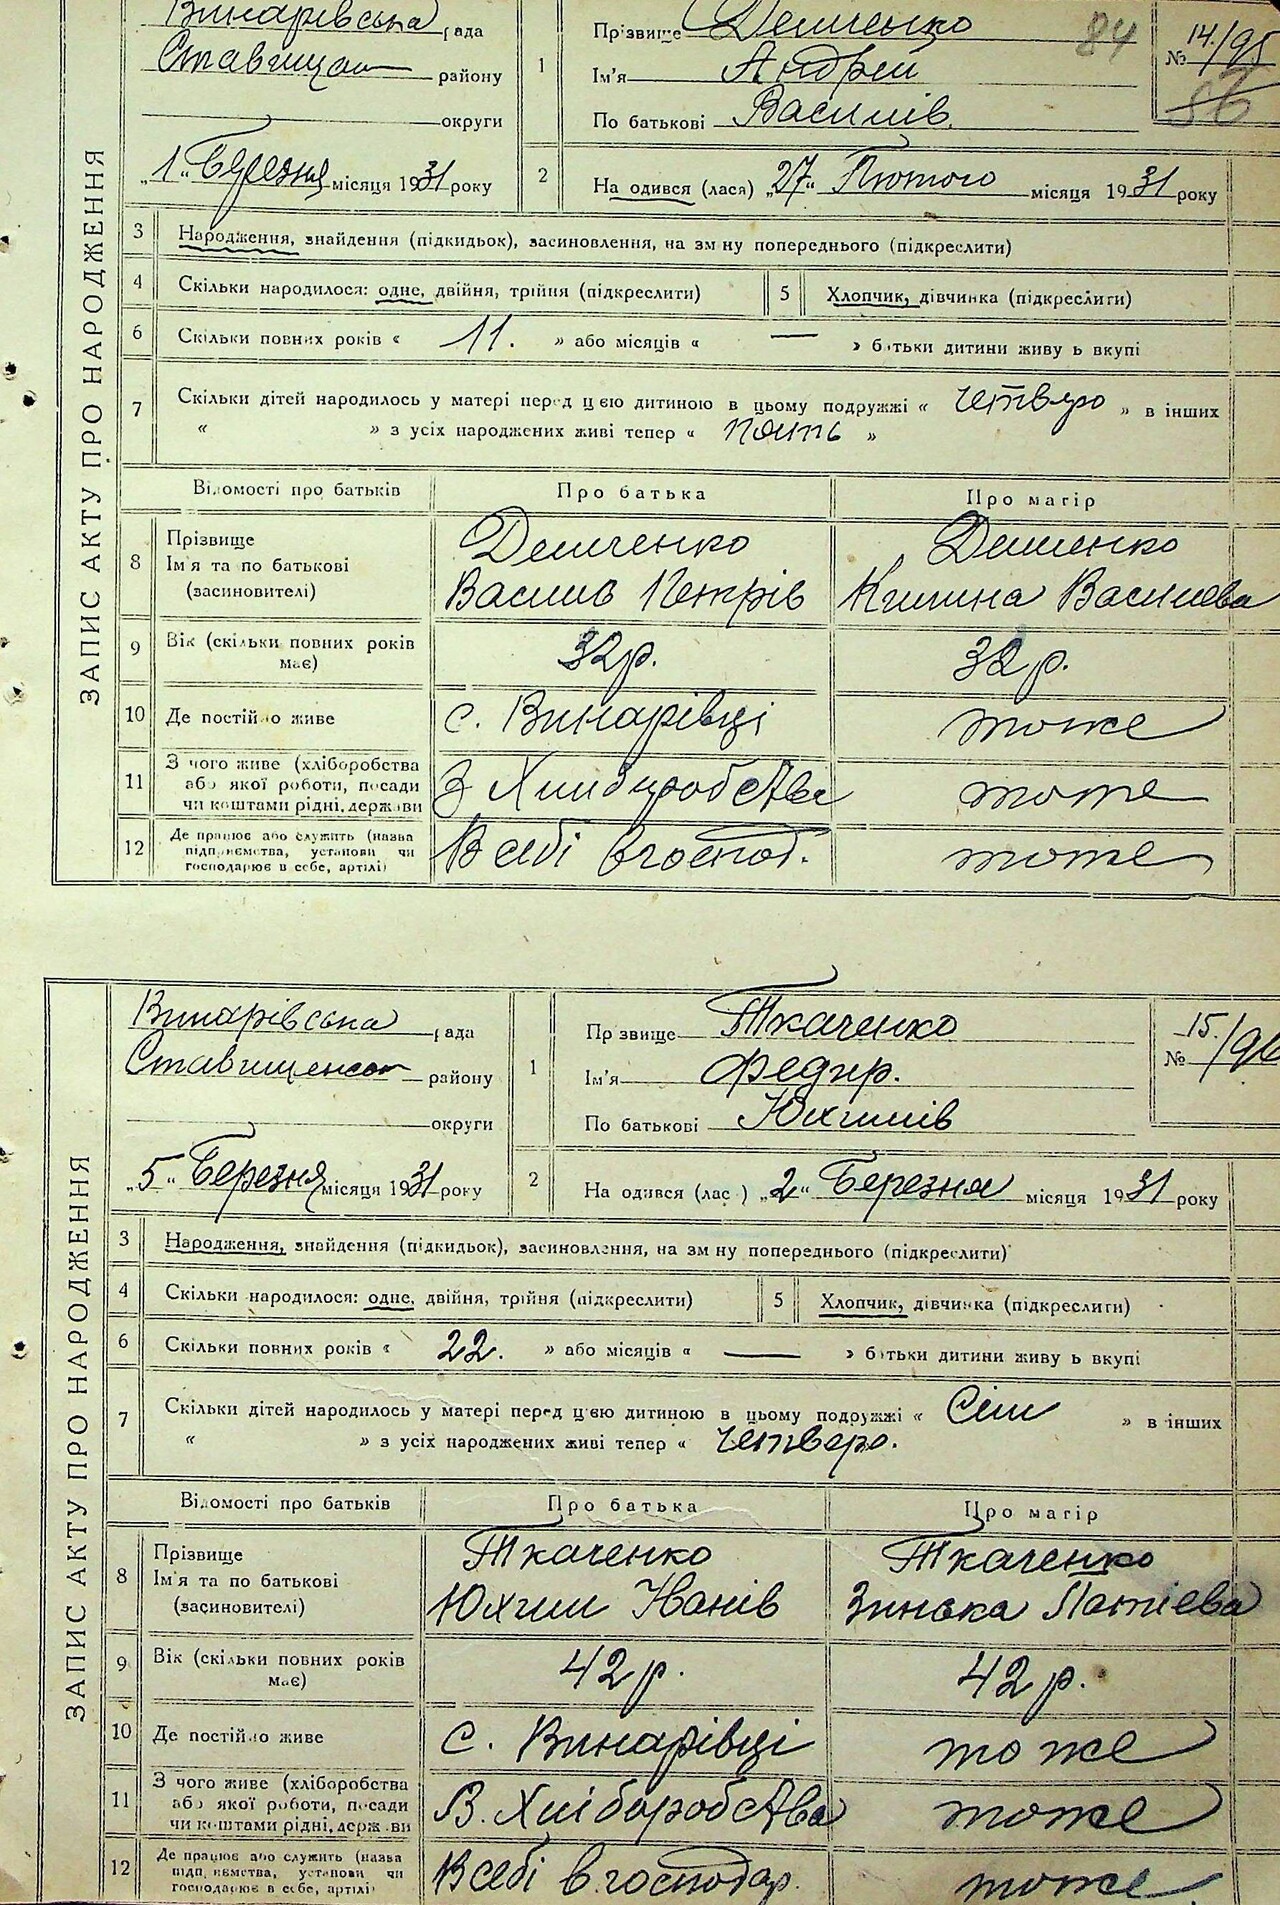 Винарівська рада
Ставищан району
округи
„1" Березня місяця 1931 року
1 Прізвище Демченко
Ім'я Андрей
По батькові Василів
84
№ 14./95
86
2 На одився (лася) „27" Лютого місяця 1931 року
ЗАПИС АКТУ ПРО НАРОДЖЕННЯ
3 Народження, знайдення (підкидьок), засиновлення, на зм ну попереднього (підкреслити)
4 Скільки народилося: одне, двійня, трійня (підкреслити) 5 Хлопчик, дівчинка (підкреслити)
6 Скільки повних років « 11. » або місяців « — » батьки дитини живу ь вкупі
7 Скільки дітей народилось у матері перед цією дитиною в цьому подружжі « четверо » в інших
« » з усіх народжених живі тепер « пять »
Відомості про батьків Про батька Про матір
8 Прізвище Демченко Демченко
Ім'я та по батькові Василь Петрів Килина Василева
(засиновителі)
9 Вік (скільки повних років має) 32 р. 32 р.
10 Де постійно живе с. Винарівці тоже
11 З чого живе (хліборобства
або якої роботи, посади З Хліборобства тоже
чи коштами рідні, держави
12 Де працює або служить (назва
підприємства, установи чи В себі в господ. тоже
господарює в себе, артілі)
Винарівська рада
Ставищенськ району
округи
„5" Березня місяця 1931 року
1 Прізвище Ткаченко
Ім'я Федир.
По батькові Юхимів
№ 15./96
2 На одився (лас ) „2" Березня місяця 1931 року
ЗАПИС АКТУ ПРО НАРОДЖЕННЯ
3 Народження, знайдення (підкидьок), засиновлення, на зм ну попереднього (підкреслити)
4 Скільки народилося: одне, двійня, трійня (підкреслити) 5 Хлопчик, дівчинка (підкреслити)
6 Скільки повних років « 22. » або місяців « — » батьки дитини живу ь вкупі
7 Скільки дітей народилось у матері перед цією дитиною в цьому подружжі « Сім » в інших
« » з усіх народжених живі тепер « четверо.
Відомості про батьків Про батька Про матір
8 Прізвище Ткаченко Ткаченко
Ім'я та по батькові Юхим Іванів Зинька
(засиновителі)
9 Вік (скільки повних років має) 42 р. 42 р.
10 Де постійно живе с. Винарівці тоже
11 З чого живе (хліборобства
або якої роботи, посади В. Хліборобства тоже
чи коштами рідні, держ ви
12 Де працює або служить (назва
підприємства, установи чи В себі в господар. тоже
господарює в себе, артілі)